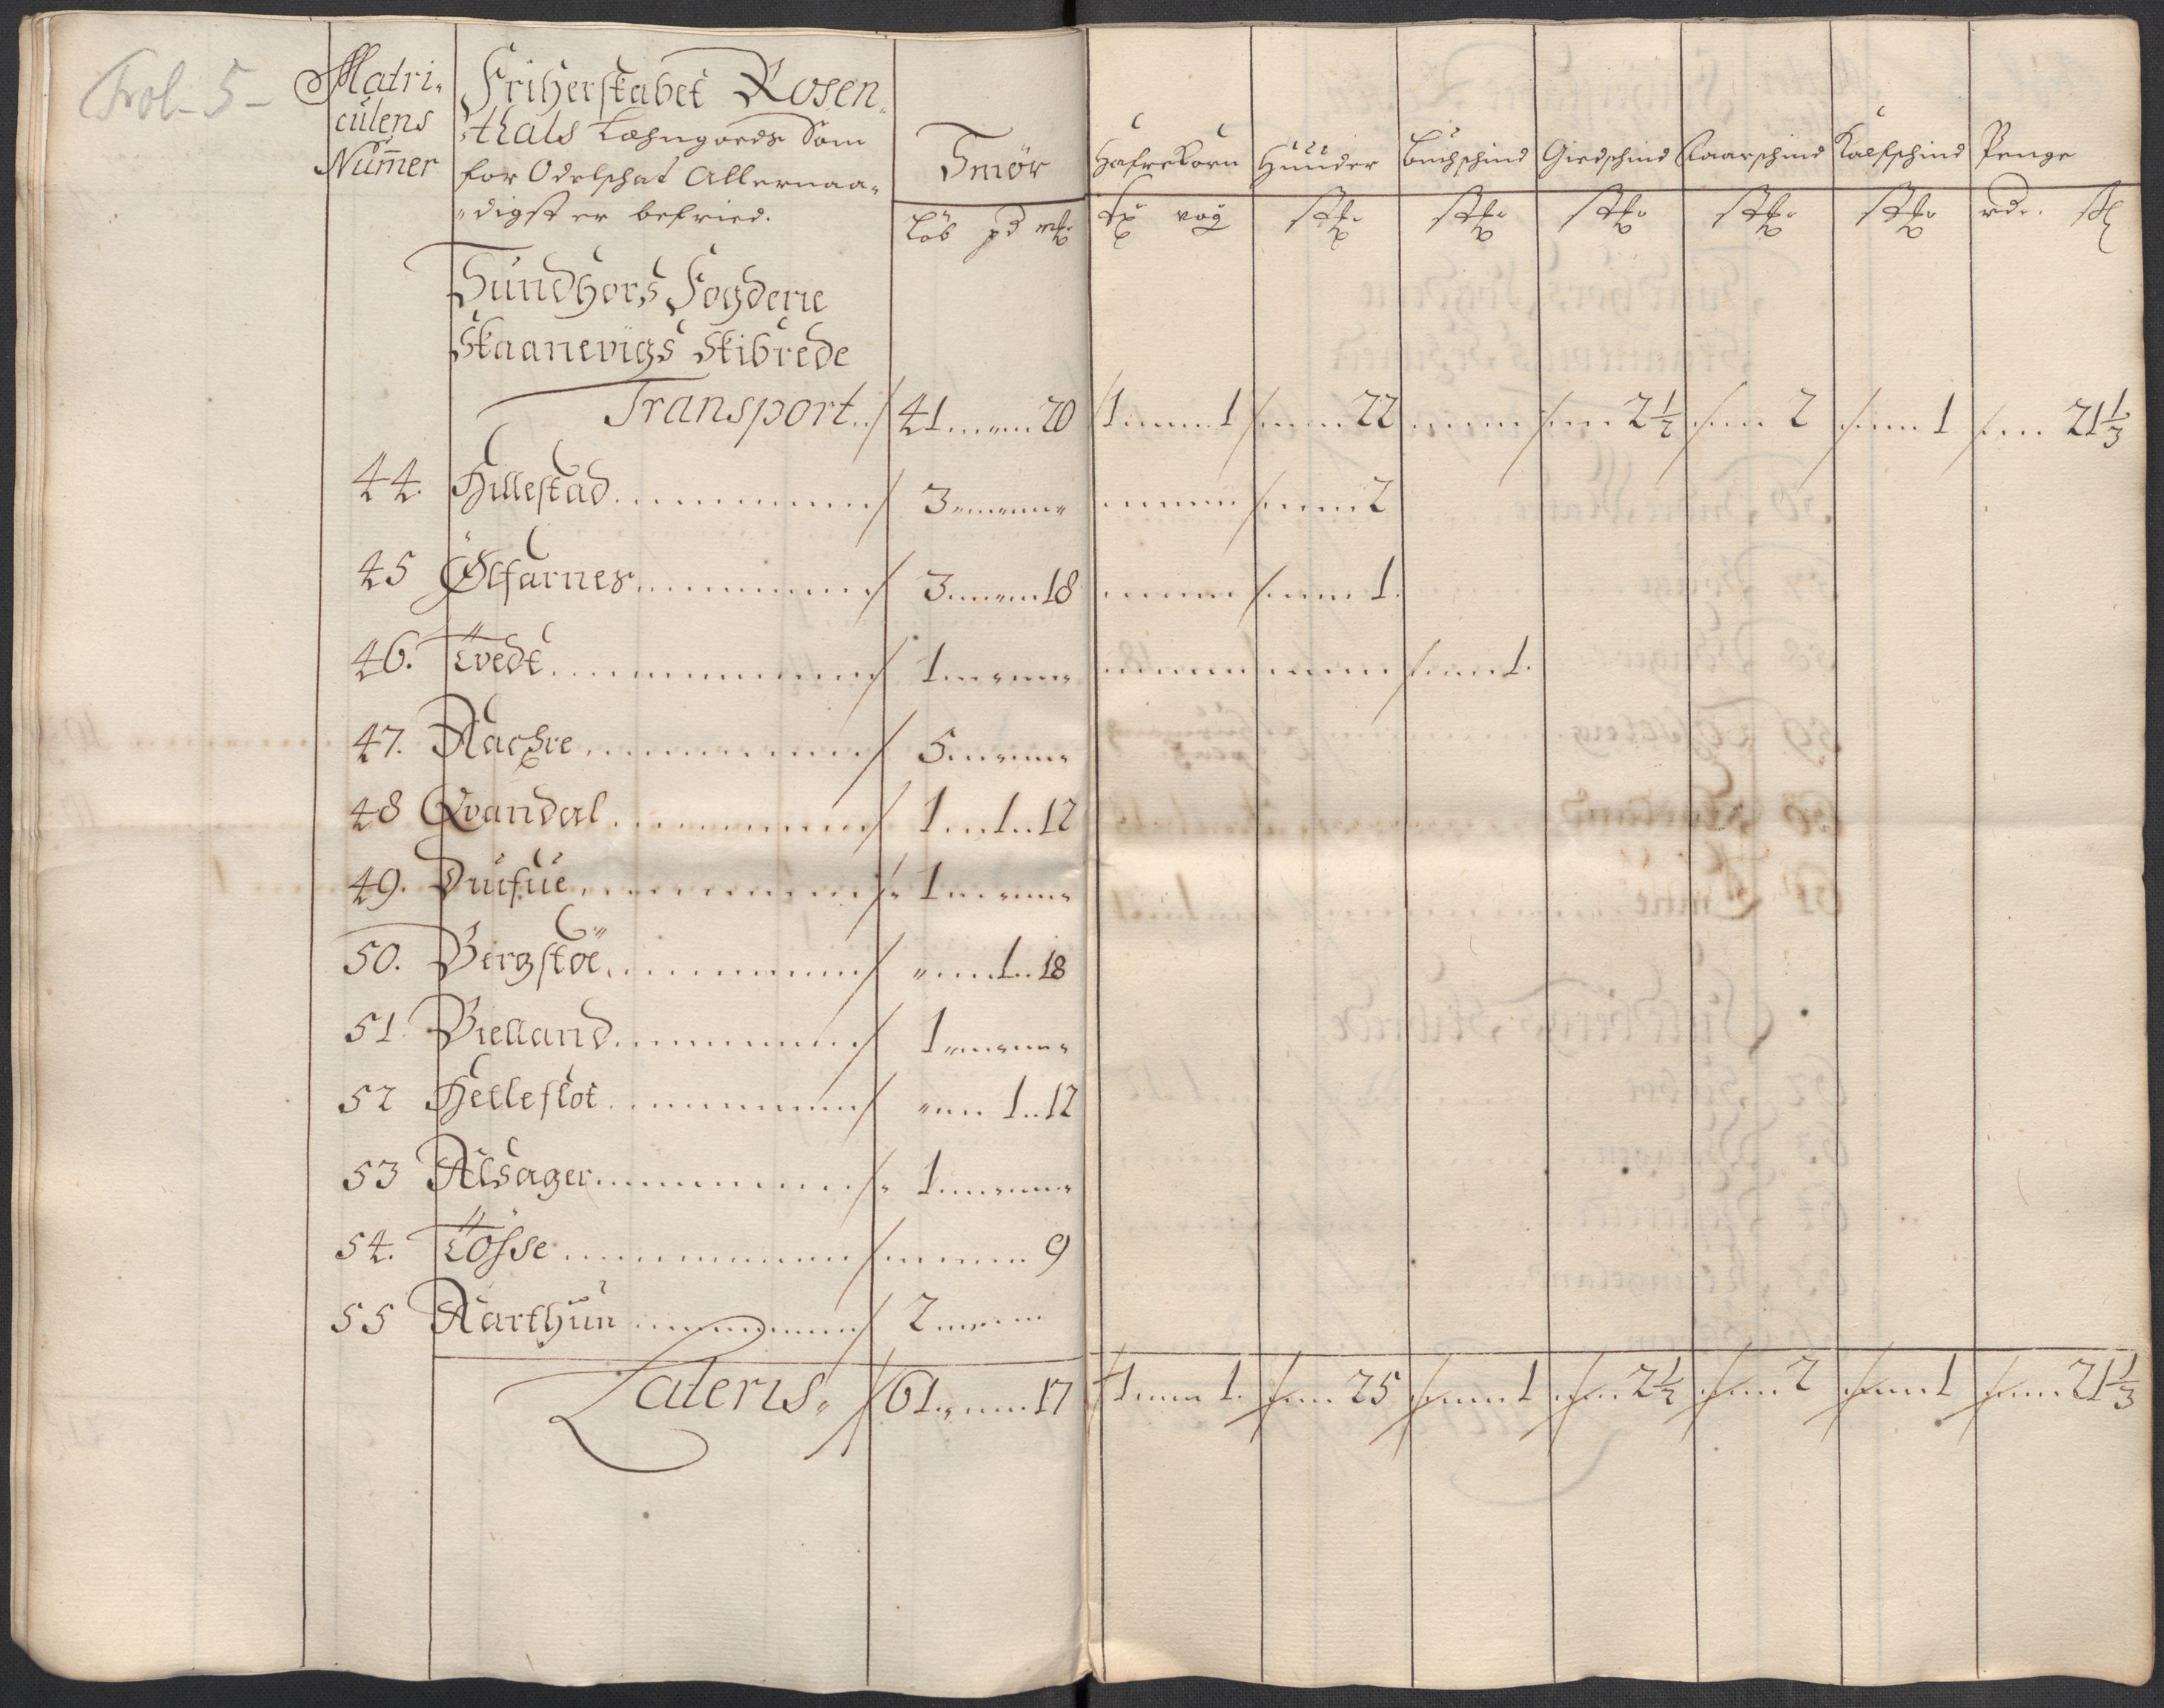 Frol- 5-
Matri-
culens
Num̄er
Friherskabet Rosen-
-thals Læhngoeds Som
for Odelschat Allernaa-
-digst er befried.
Smör
Löb pd mk
Hafrekorn
Huuder
Buchschind
Giedschind
Faarschind
Kalfschind
Penge
vog
rdr. sl
Sundhors Fogderie
Skaanevigs Skibrede
Transport 41 20 1 1 22 2½ 2 1 21⅓
44. Hillestad 3 2
45 Ölfarnes 3 18 1
46. Tvedt 1 1
47. Aachre 5
48 Qvandal 1 1 12
49. Duusue 1
50. Bergstöe 1 18
51. Bielland 1
52 Hetleflot 1 12
53 Alsager 1
54. Tösse 9
55 Aarthun 2
Lateris 61 17 1 1 25 1 2½ 2 1 21⅓